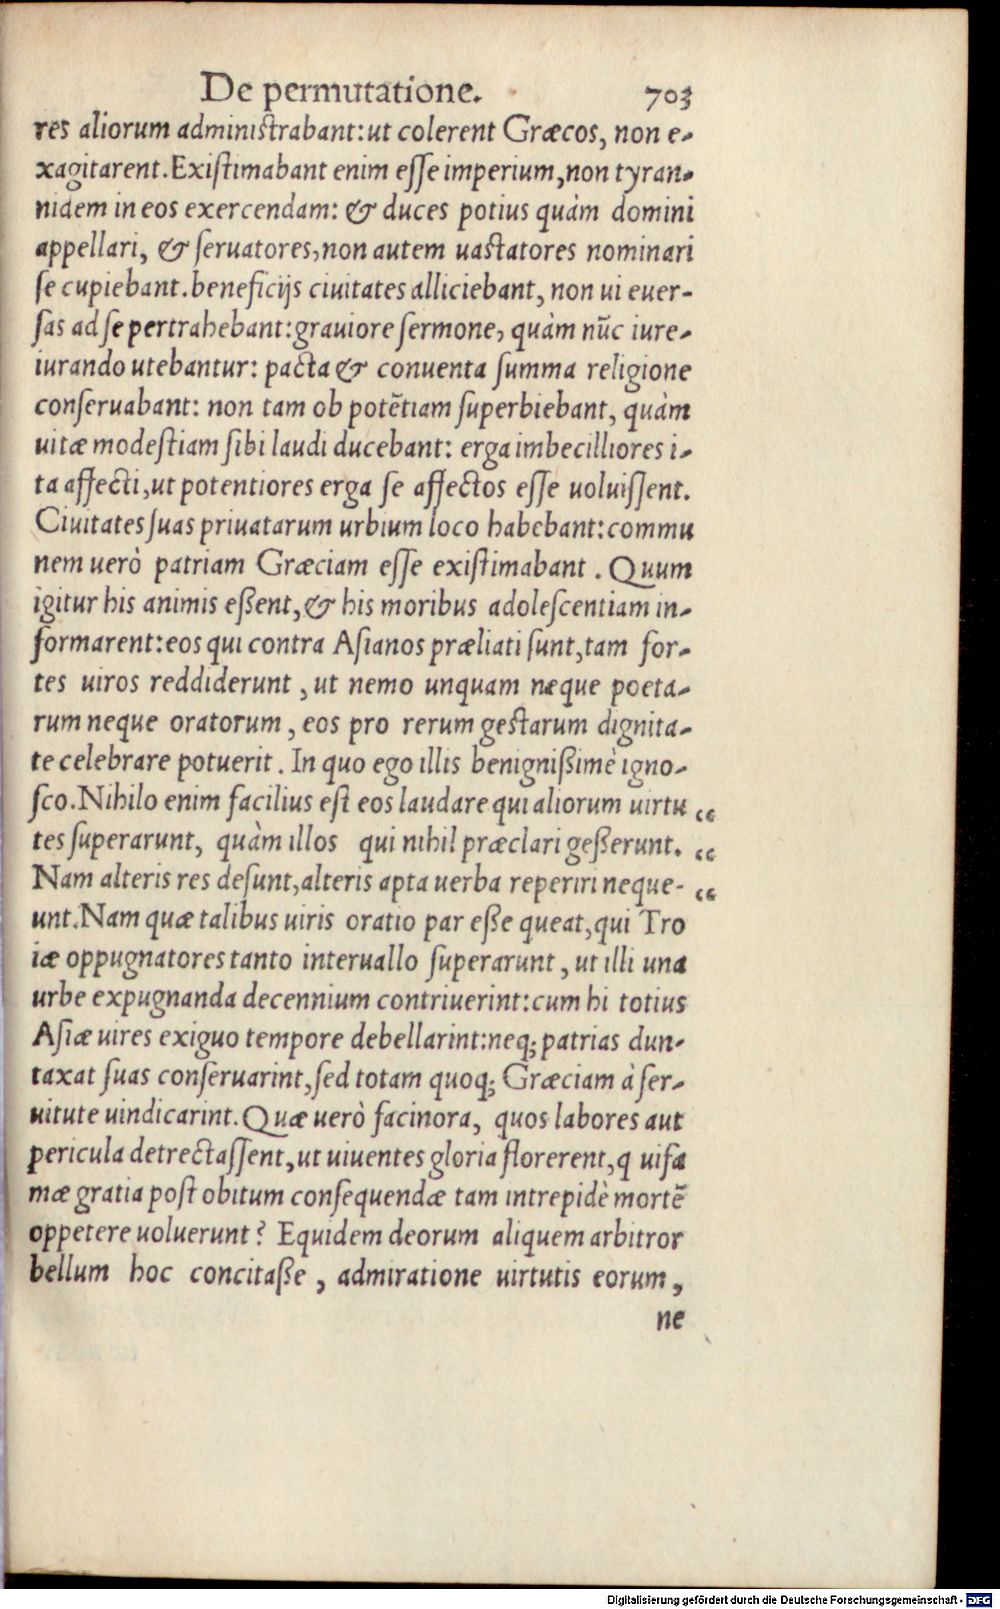 De permutatione. 703
res aliorum administrabant: ut colerent Græcos, non e-
xagitarent. Existimabant enim esse imperium, non tyran-
nidem in eos exercendam: & duces potius quàm domini
appellari, & seruatores, non autem uastatores nominari
se cupiebant. beneficijs ciuitates alliciebant, non ui euer-
sas ad se pertrahebant: grauiore sermone, quàm nūc iure-
iurando utebantur: pacta & conuenta summa religione
conseruabant: non tam ob potētiam superbiebant, quàm
uitæ modestiam sibi laudi ducebant: erga imbecilliores i-
ta affecti, ut potentiores erga se affectos esse uoluissent.
Ciuitates suas priuatarum urbium loco habebant: commu
nem uerò patriam Græciam esse existimabant. Quum
igitur his animis eßent, & his moribus adolescentiam in-
formarent: eos qui contra Asianos præliati sunt, tam for-
tes uiros reddiderunt, ut nemo unquam neque poeta-
rum neque oratorum, eos pro rerum gestarum dignita-
te celebrare potuerit. In quo ego illis benignißimè igno-
sco. Nihilo enim facilius est eos laudare qui aliorum uirtu “
tes superarunt, quàm illos qui nihil præclari geßerunt. “
Nam alteris res desunt, alteris apta uerba reperiri neque- “
unt. Nam quæ talibus uiris oratio par eße queat, qui Tro
iæ oppugnatores tanto interuallo superarunt, ut illi una
urbe expugnanda decennium contriuerint: cum hi totius
Asiæ uires exiguo tempore debellarint: neq; patrias dun-
taxat suas conseruarint, sed totam quoq; Græciam à ser-
uitute uindicarint. Quæ uerò facinora, quos labores aut
pericula detrectassent, ut uiuentes gloria florerent, q uifa
mæ gratia post obitum consequendæ tam intrepidè mortē
oppetere uoluerunt? Equidem deorum aliquem arbitror
bellum hoc concitaße, admiratione uirtutis eorum,
ne
Digitalisierung gefördert durch die Deutsche Forschungsgemeinschaft - DFG